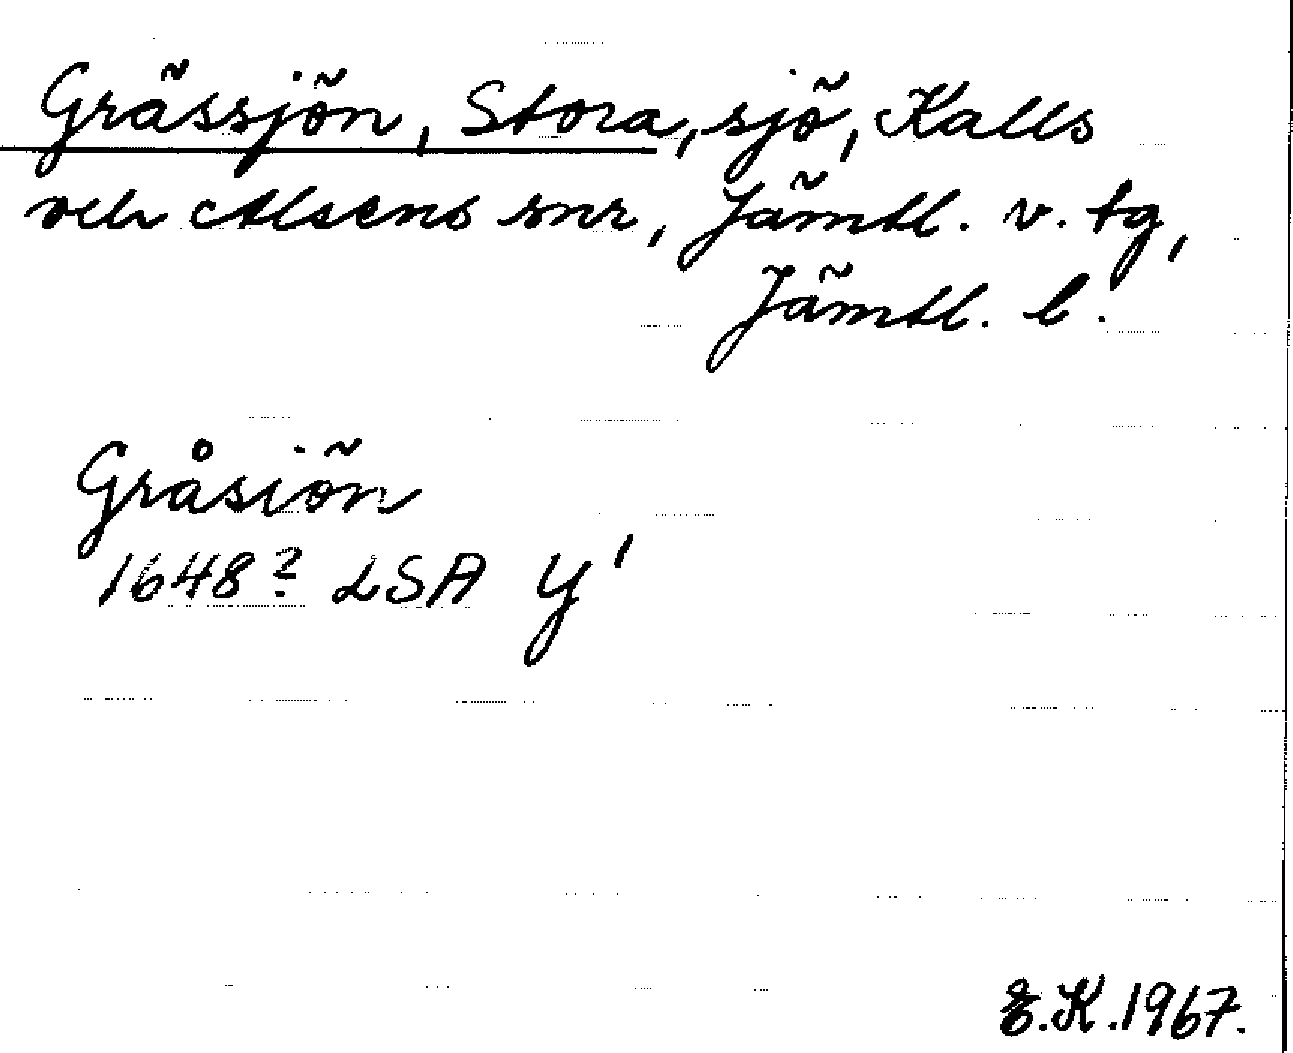 Grässjön, Stora, sjö, Kalls
och Alsens snr, Jämtl. v. tg,
Jämtl. l.
Gråsiön
1648? LSA Y'
E.K. 1967.